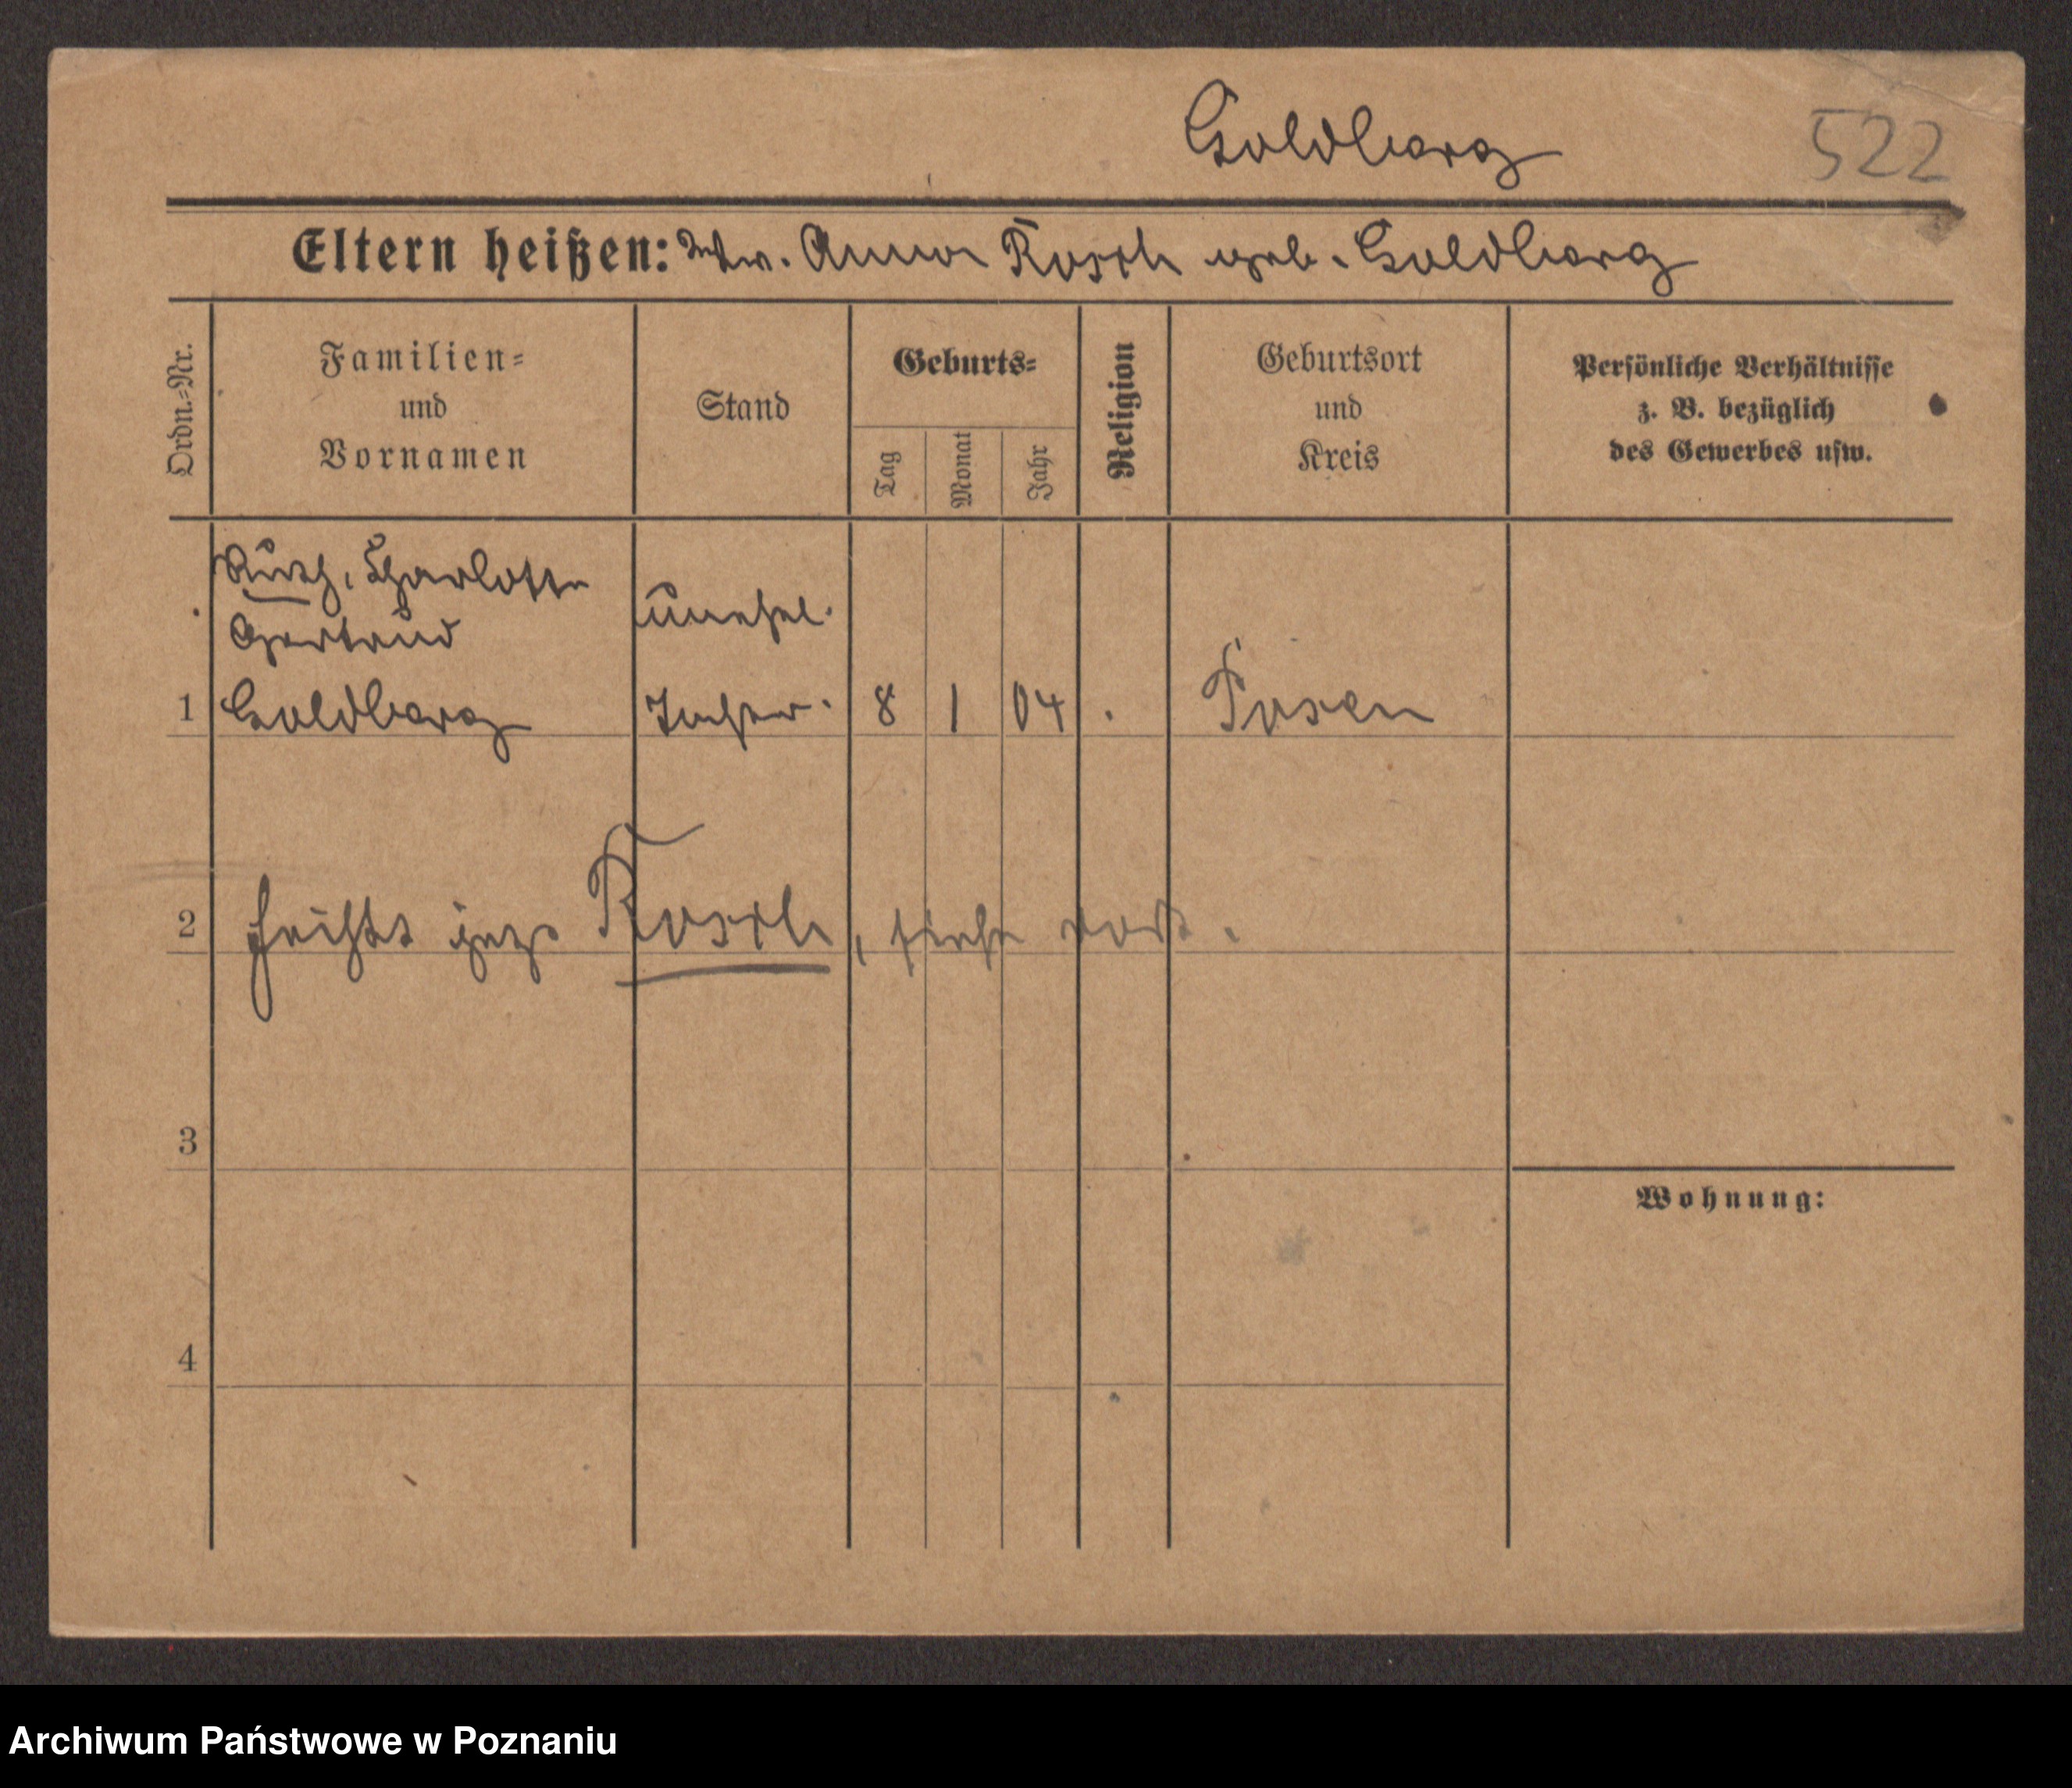 Goldberg 522
Eltern heißen: Ww. Anna Rosch geb. Goldberg
Ordn.-Nr.
Familien-
und
Vornamen
Stand
Geburts-
Tag
Monat
Jahr
Religion
Geburtsort
und
Kreis
Persönliche Verhältnisse
z. B. bezüglich
des Gewerbes usw.
Ruth, Charlotte
Gertrud unehel.
1 Goldberg Tochter. 8 1 04 Posen
2 heißt jetzt Rosch, siehe dort.
3
Wohnung:
4
Archiwum Państwowe w Poznaniu